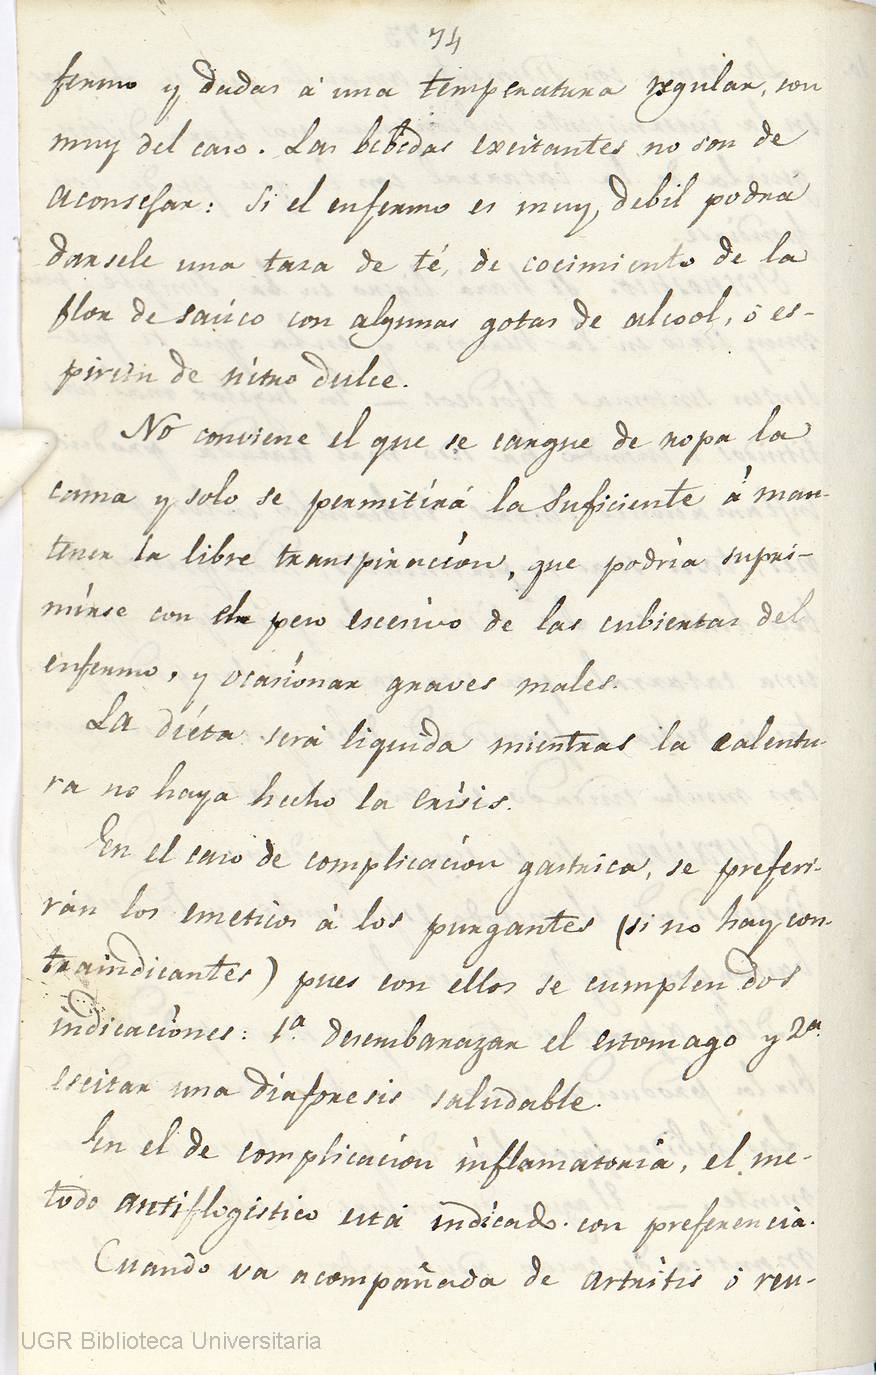 74
fermo y dadas á una temperatura regular, son
muy del caso. Las bebidas excitantes no son de
aconsejar: Si el enfermo es muy debil podrá
darsele una taza de té, de cocimiento de la
flor de saúco con algunas gotas de alcool, ó es-
píritu de nitro dulce.
No conviene el que se cargue de ropa la
cama y solo se permitirá la suficiente á man-
tener la libre transpiración, que podría supri-
mirse con el peso escesivo de las cubiertas del
enfermo, y ocasionar graves males.
La diéta será liquida mientras la calentu-
ra no haya hecho la crisis.
En el caso de complicación gastrica, se preferi-
rán los emeticos á los purgantes (si no hay con-
traindicantes) pues con ellos se cumplen dos
indicaciónes: 1ª. desembarazar el estomago y 2ª.
escitar una diaforesis saludable.
En el de complicación inflamatoria, el me-
todo antiflogistico está indicado con preferencia.
Cuando va acompañada de artritis ó reu-
UGR Biblioteca Universitaria